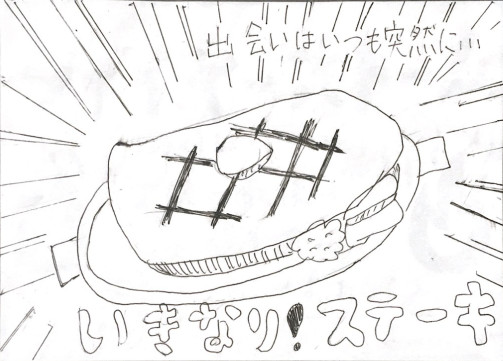 出会いはいつも突然に…
いきなり!ステーキ